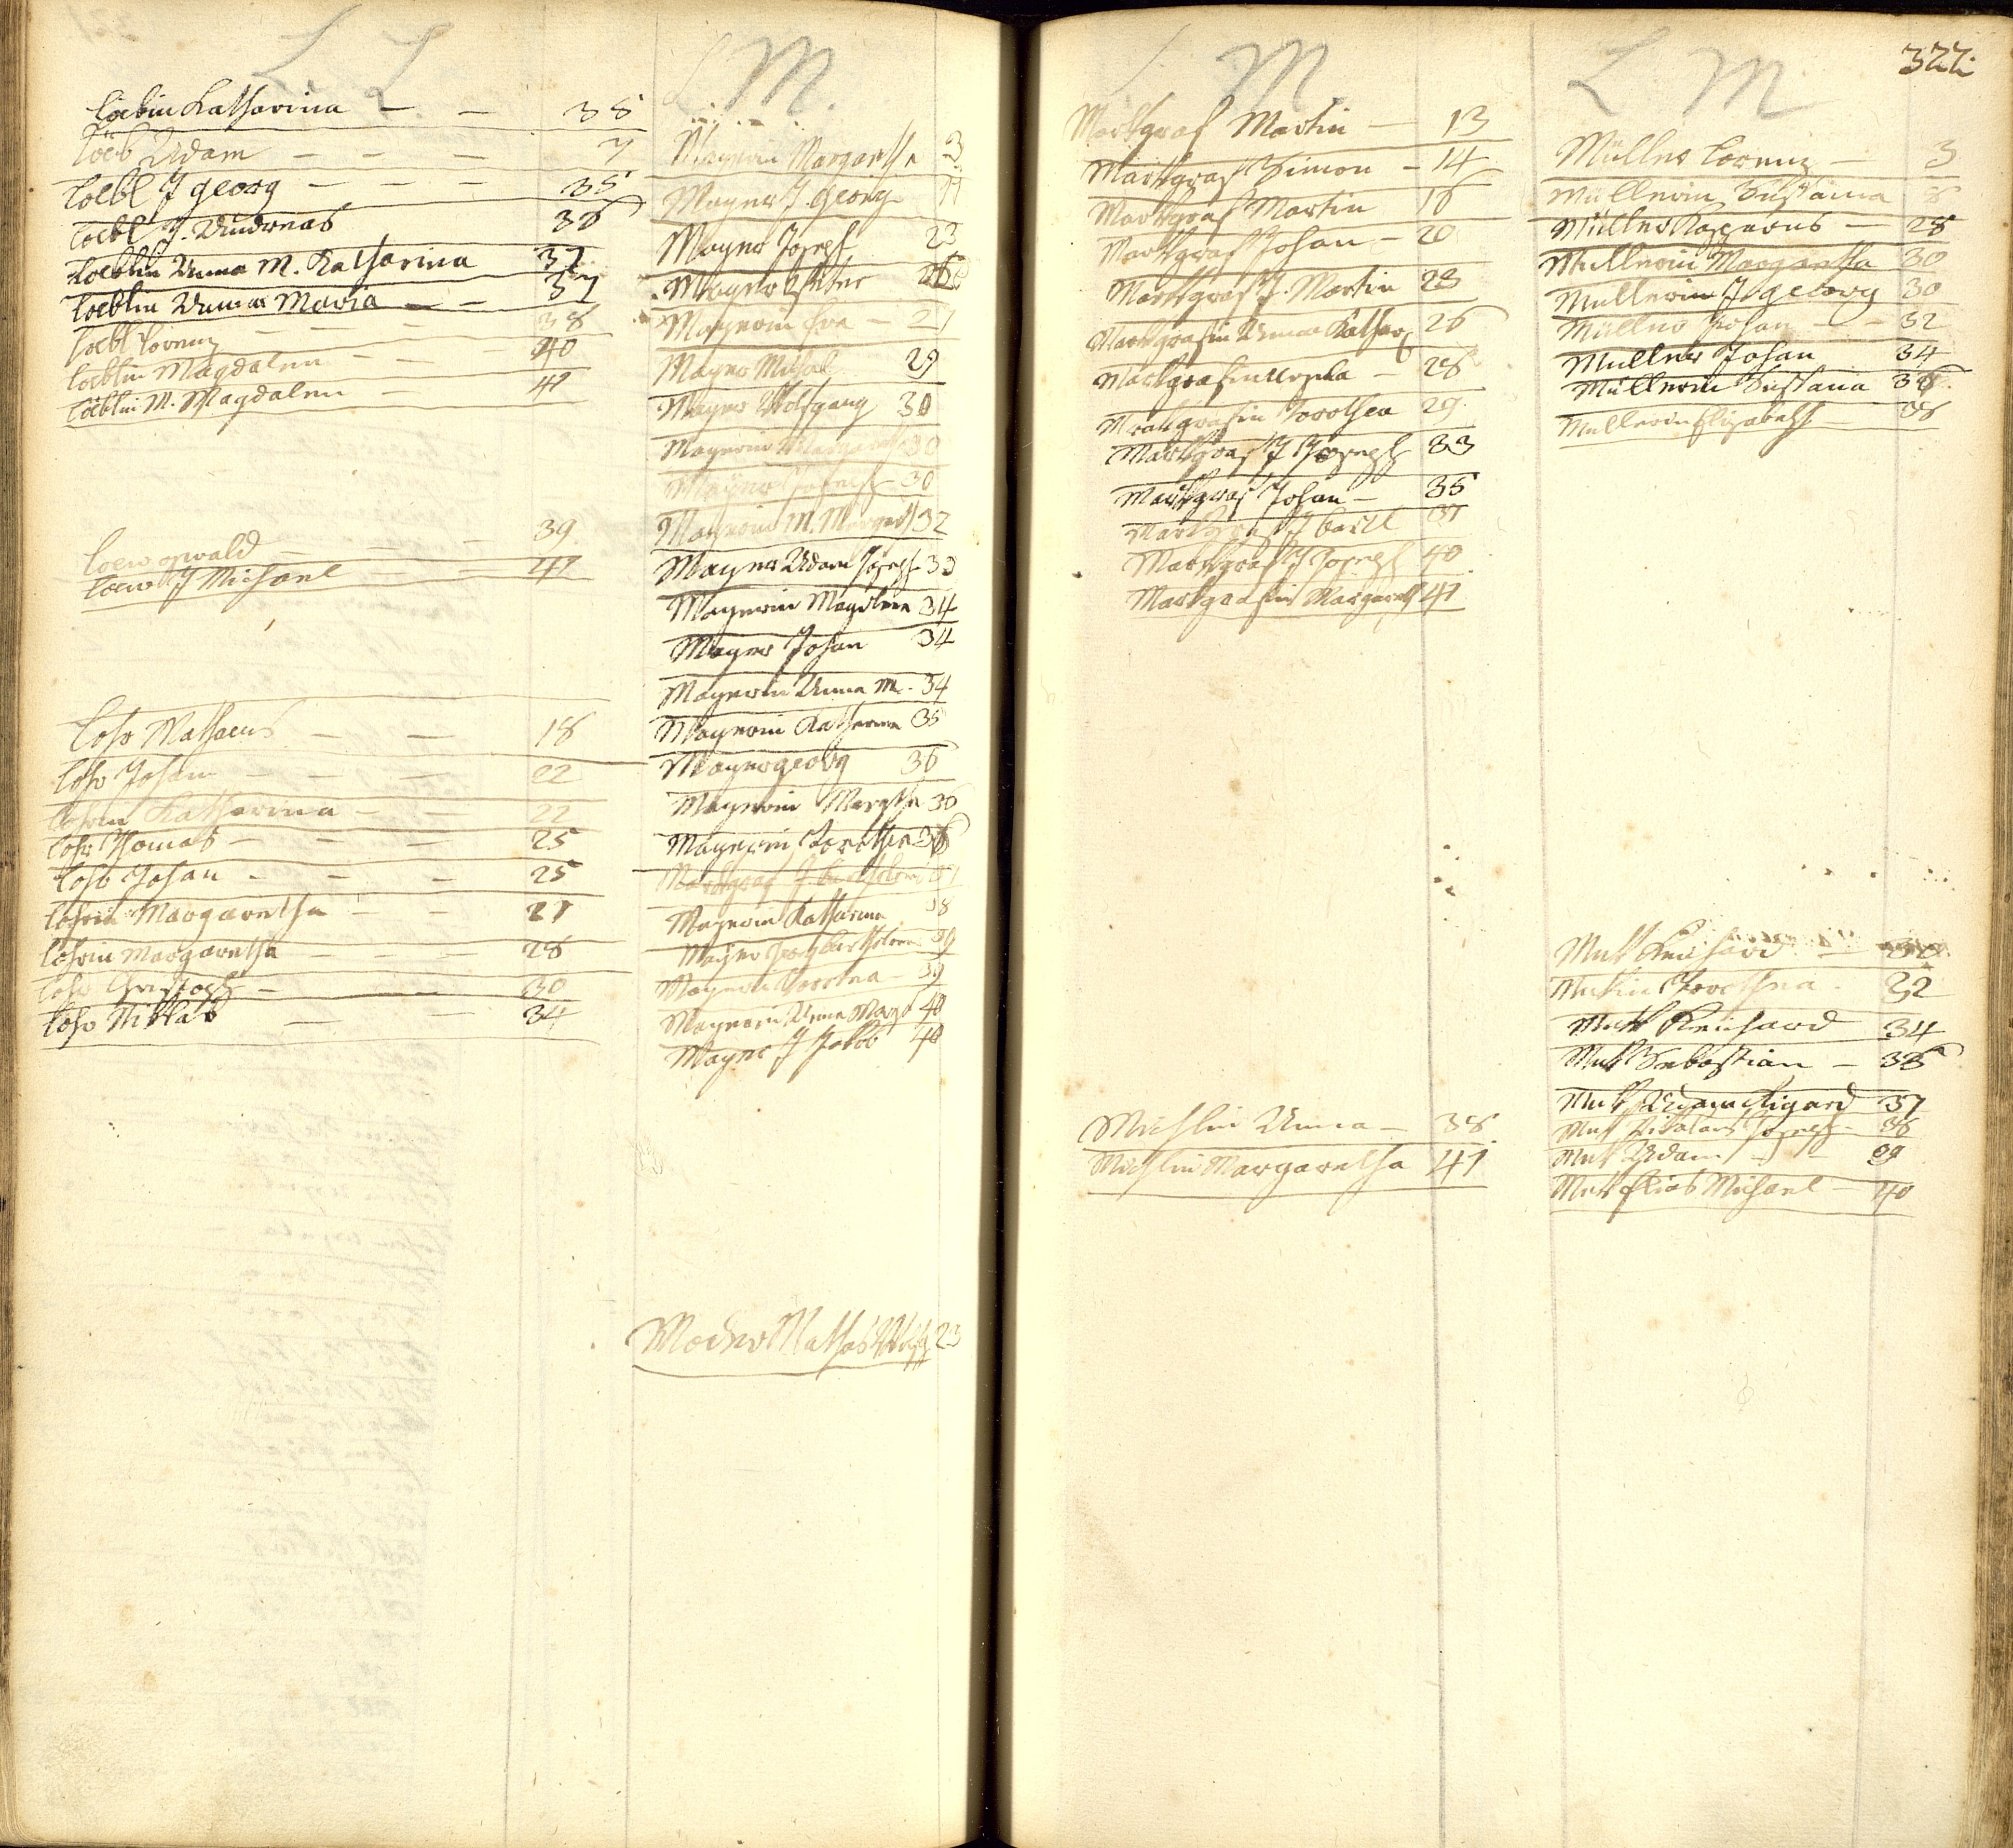 L. L.
Loebin Katharina — — 38
Loeb Adam — — — 7
Loebl J georg — — — 35
Loebl J. Andreas 36
Loeblin Anna M. Katharina 37
Loeblin Anna Maria — — 37
Loebl Lorenz — — — 38
Loeblin Magdalen — — 40
Loeblin M. Magdalen — — 41
Loew oswald — — — 39
Loew J Michael — 41
Lohr Mathaeus — — 18
Lohr Johan — — — 22
Lohrin Katharina — — 22
Lohr Thomas — — — 25
Lohr Johan — — — 25
Lohrin Margaretha — — 27
Lohrin Margaretha — — — 28
Lohr Christoph — — 30
Lohr Niklas — — 34
M.
Mayerin Margaretha 3
Mayer J. georg 11
Mayer Joseph 23
Mayer Peter 26
Mayerin Eva — 27
Mayer Michal 29
Mayer Wolfgang 30
Mayerin Margareth 30
Mayer Joseph 30
Mayerin M. Margareth 32
Mayer Adam Joseph 33
Mayerin Magdlena 34
Mayer Johan 34
Mayerin Anna M. 34
Mayerin Katharina 35
Mayer georg 36
Mayerin Margtha 36
Mayerin Dorothea 36
Markgraf J bartholome 37
Mayerin Katharina 38
Mayer Joseph bartholome 39
Mayerin Dorothea — 39
Mayerin Anna Marg 40
Mayer J Jakob 40
Mathes 23
M.
Markgraf Martin — 13
Markgraf Simon — 14
Markgraf Martin 18
Markgraf Johan — 20
Markgraf J. Martin 23
Markgrafin Anna Kathar 26
Markgrafin — 28
Markgrafin Dorothea 29
Markgraf J Joseph 33
Markgraf Johan — 35
Markgraf J bartl 37
Markgraf J Joseph 40
Markgrafin Margareth 41
Michlin Anna — 38
Michlin Margaretha 41
L M
322
Müller Lorenz — 3
Müllerin Susanna 8
Müller Kasparus — 28
Müllerin Margaretha 30
Müllerin J georg 30
Müller Johan — — 32
Müller Johan 34
Müllerin Susanna 36
Müllerin Elisabeth — 38
Muk Reichard 30
Mukin Dorothea 32
Muk Reichard 34
Muk Sebastian — 36
Muk Adam Rigard 37
Muk Joseph 38
Muk Adam — — 39
Muk Elias Michael — 40